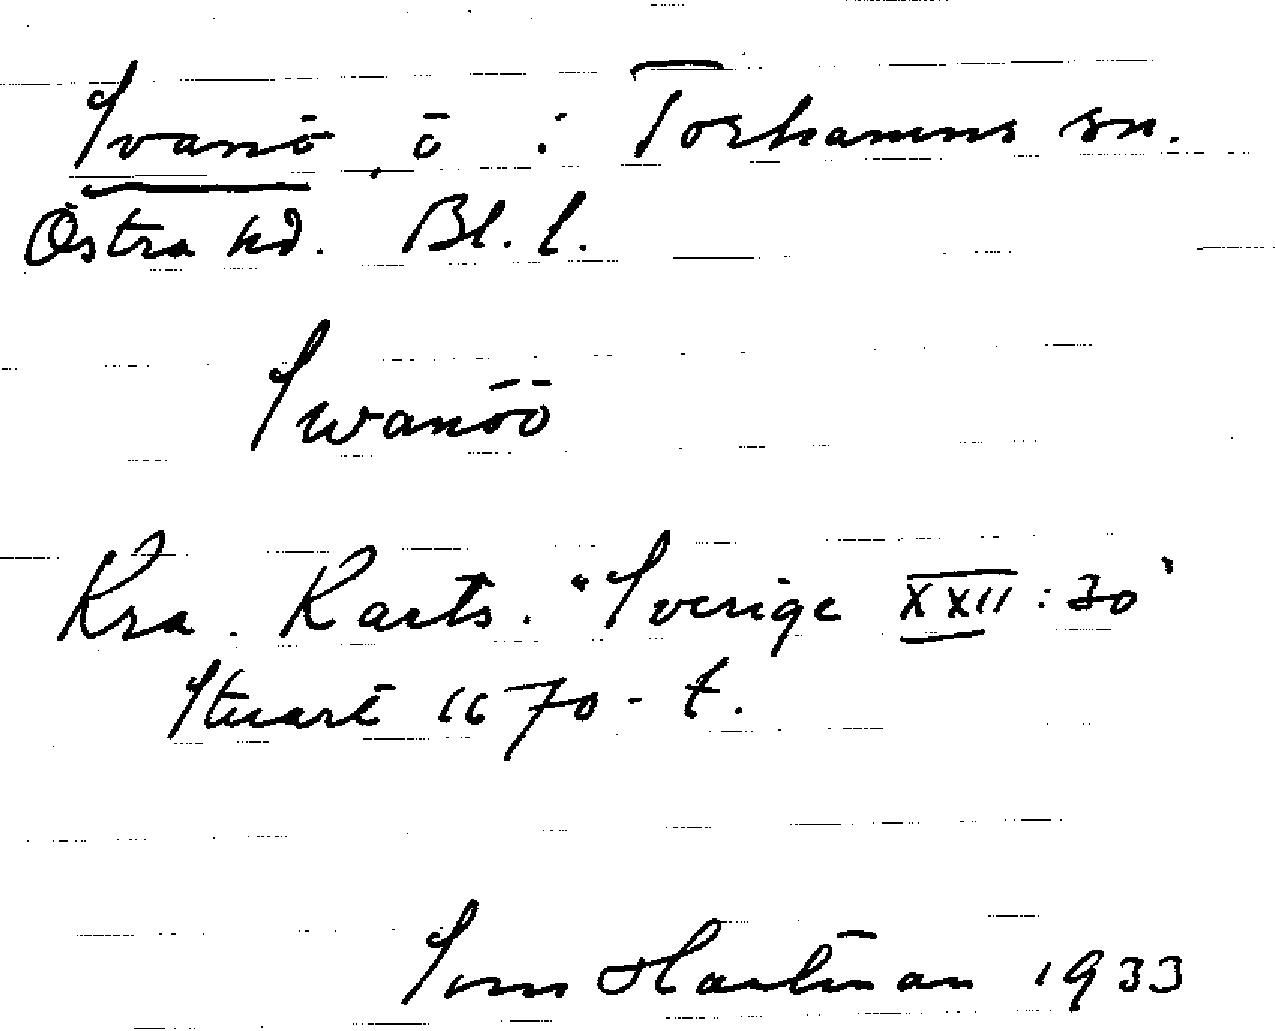 Svanö, ö i Torhamns sn.
Östra hd. Bl. l.
Swanöö
Kra. Karts. "Sverige XXII: 30"
Stuart 1670-t.
Hartman 1933